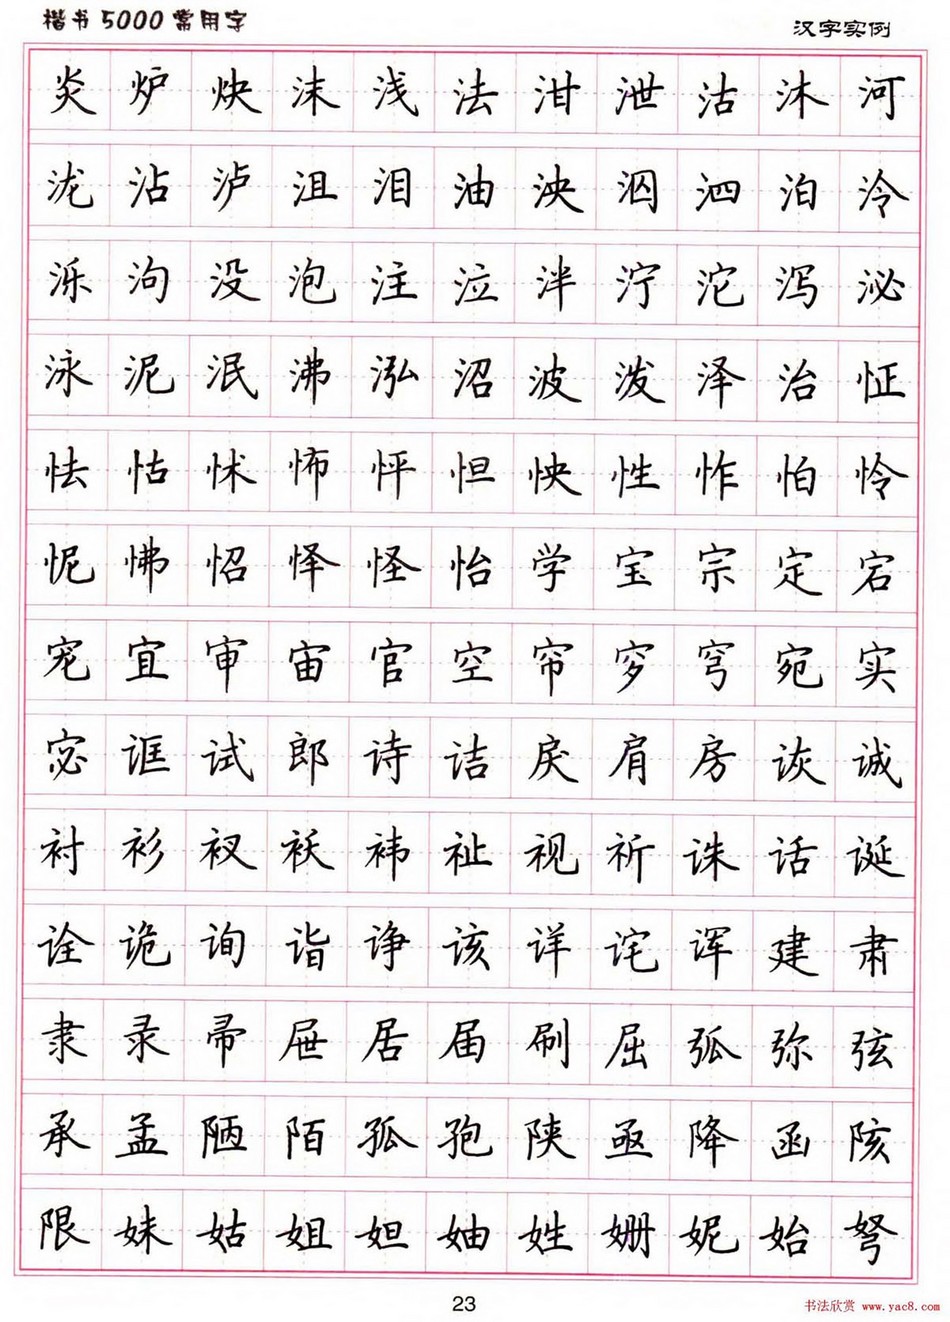 楷书5000常用字
汉字实例
炎炉炔沫浅法泔泄沽沐河
泷沾泸沮泪油泱泅泗泊泠
泺泃没泡注泣泮泞沱泻泌
泳泥泯沸泓沼波泼泽治怔
怯怙怵怖怦怛怏性怍怕怜
怩怫怊怿怪怡学宝宗定宕
宠宜审宙官空帘穸穹宛实
宓诓试郎诗诘戾肩房诙诚
衬衫衩袄祎祉视祈诛话诞
诠诡询诣诤该详诧诨建肃
隶录帚屉居届刷屈弧弥弦
承孟陋陌孤孢陕亟降函陔
限妹姑姐妲妯姓姗妮始弩
23
书法欣赏 www.yac8.com